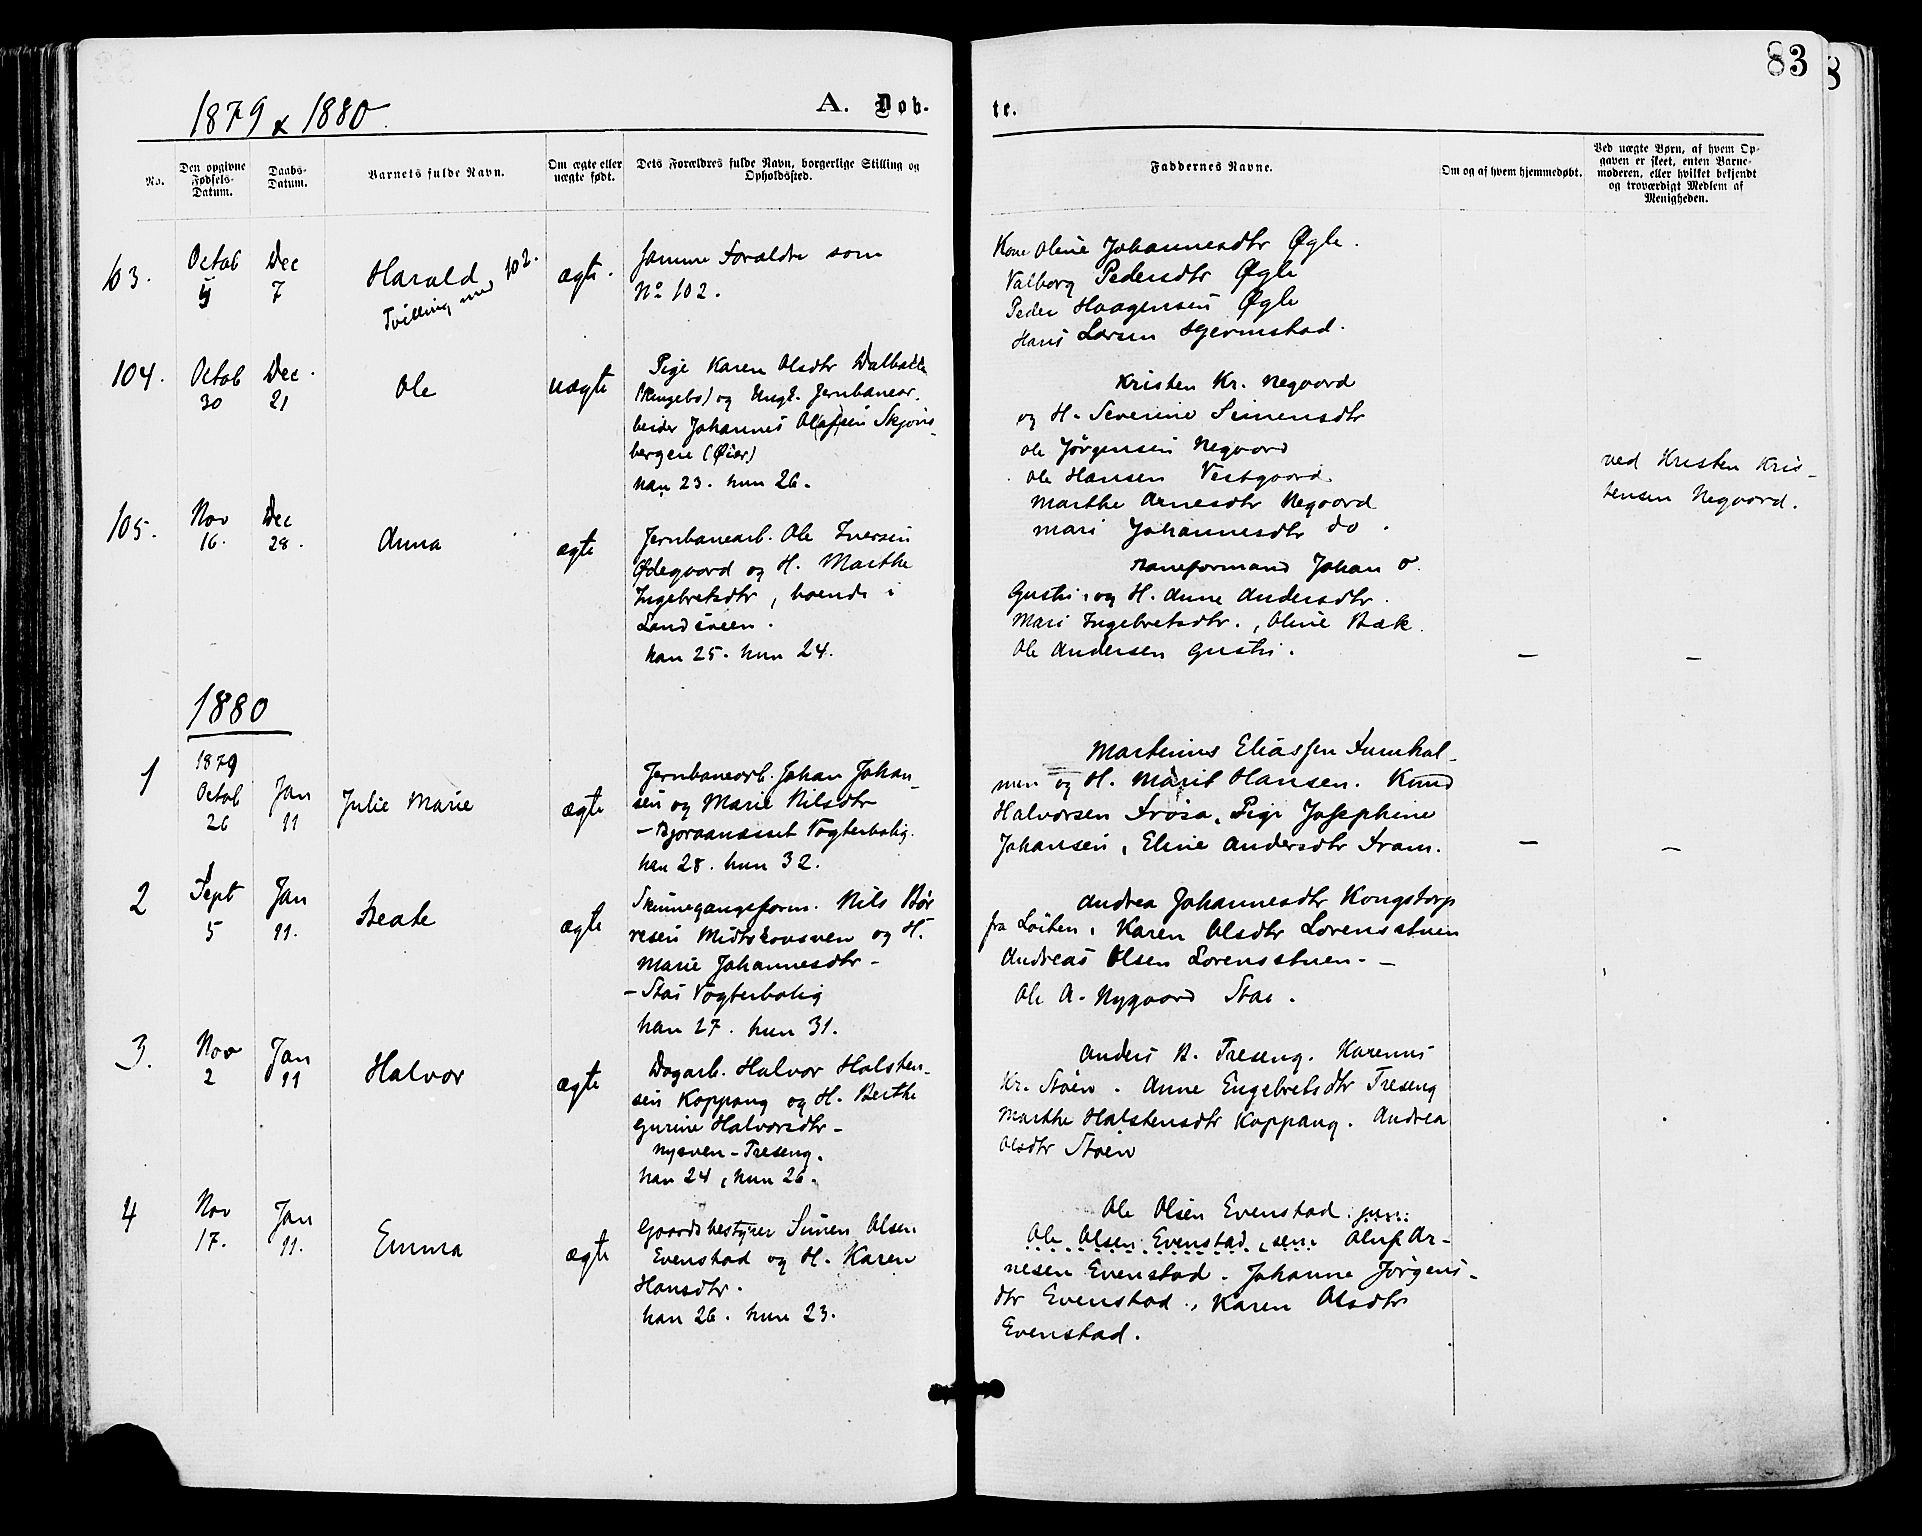 83
1879 & 1880.
A. Døb-
te.
No.
Den opgivne Fødsels-Datum.
Daabs-Datum.
Barnets fulde Navn.
Om ægte eller uægte født.
Dets Forældres fulde Navn, borgerlige Stilling og Opholdssted.
Faddernes Navne.
Om og af hvem hjemmedøbt.
Ved uægte Børn, af hvem Op-
gaven er skeet, enten Barne-
moderen, eller hvilket bekjendt
og troværdigt Medlem af
Menigheden.
103.
Octob
Dec
7
Harald
Tvilling med 102.
ægte.
Samme Forældre som
No 102.
Kone Oline Johannesdtr Øgle.
Valborg Pedersdtr Øgle
Peder Haagensen Øgle
Hans Larsen Hjermstad.
104.
Octob
30
Dec.
21
Ole
uægte
Pige Karen Olsdtr
(Ringebo) og Ungk. Jernbanear-
beider Johannes Olafsen Skjøns-
bergeie (Øier)
han 23. hun 26.
Kristen Kr. Negaard
og H. Severine Simensdtr
Ole Jørgensen Negaard
Ole Hansen Vestgaard.
Marthe Arnesdtr Negaard
Mari Johannesdtr do.
ved Kristen Kris-
tensen Negaard.
105.
Nov
16.
Dec
28.
Anna
ægte
Jernbanearb. Ole Iversen
Ødegaard og H. Marthe
Ingebretsdtr, boende i
han 25. hun 24.
Baneformand Johan O.
Gustu. og H. Anne Andersdtr.
Mari Ingebretsdtr., Oline Bæk.
Ole Andersen Gustu.
—
—
1880
1
1879
Octob
26
Jan
11
Julie Marie
ægte
Jernbanearb. Johan Johan-
sen og Marie Nilsdtr
– Bjøraanæsset Vogterbolig.
han 28. hun 32.
Martinus Eliassen
og H. Marit Hansen. Knud
Halvorsen Frøsa, Pige Josephine
Johansen, Eline Andersdtr Fram.
—
—
2
Sept
5
Jan
11.
Beate
ægte
Skinnegangsform. Nils Bør
resen Midtskovsven og H.
Marie Johannesdtr –
– Stai Vogterbolig
han 27. hun 31.
Andrea Johannesdtr Kongstorp
fra Løiten, Karen Olsdtr Lorensstuen
Andreas Olsen Lorensstuen. –
Ole A. Nygaard Stai.
3.
Nov
2
Jan
11
Halvor
ægte
Dagarb. Halvor Halsten-
sen Koppang og H. Berthe
Gurine Halvorsdtr –
Nysven – Treseng.
han 24, hun 26.
Anders B. Treseng. Karenus
Kr. Støen. Anne Engebretsdtr Treseng
Marthe Halstensdtr Koppang. Andrea
Olsdtr Støen
4
Nov
17.
Jan
11.
Emma
ægte
Gaardsbestyrer Simen Olsen
Evenstad og H. Karen
Hansdtr.
han 26. hun 23.
Ole Olsen Evenstad jun:
Ole Olsen Evenstad, sen. Oluf Ar-
nesen Evenstad. Johanne Jørgens-
dtr Evenstad., Karen Olsdtr
Evenstad.